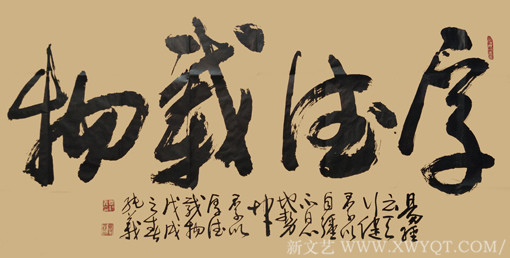 厚德載物
易經
云天
行健
君子以
自強
不息
地勢
坤
君子以
厚德
載物
戊戌
之春
新文艺 WWW.XWYQT.COM